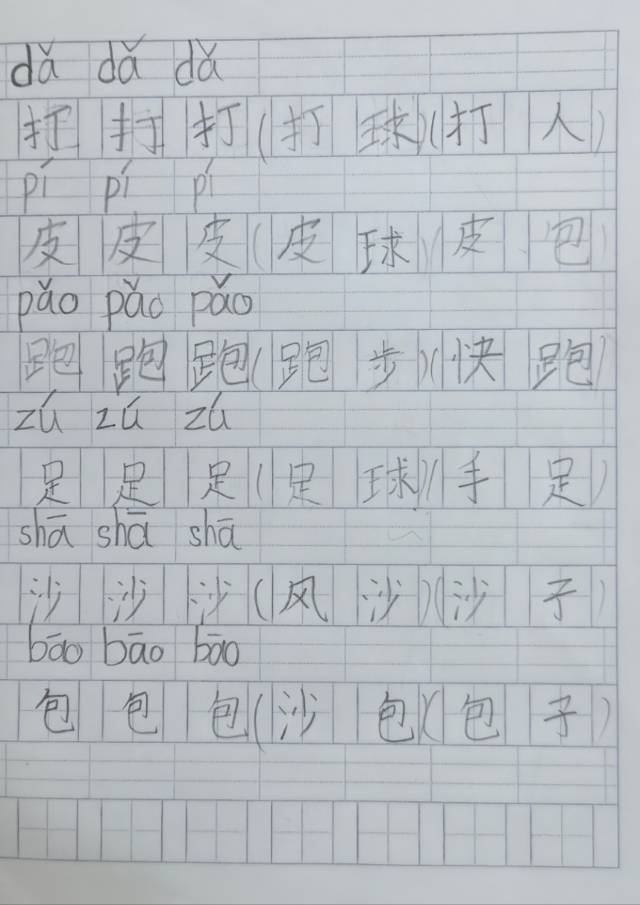 dǎ dǎ dǎ
打 打 打 (打 球)(打 人)
pí pí pí
皮 皮 皮 (皮 球)(皮 包)
pǎo pǎo pǎo
跑 跑 跑 (跑 步)(快 跑)
zú zú zú
足 足 足 (足 球)(手 足)
shā shā shā
沙 沙 沙 (风 沙)(沙 子)
bāo bāo bāo
包 包 包 (沙 包)(包 子)